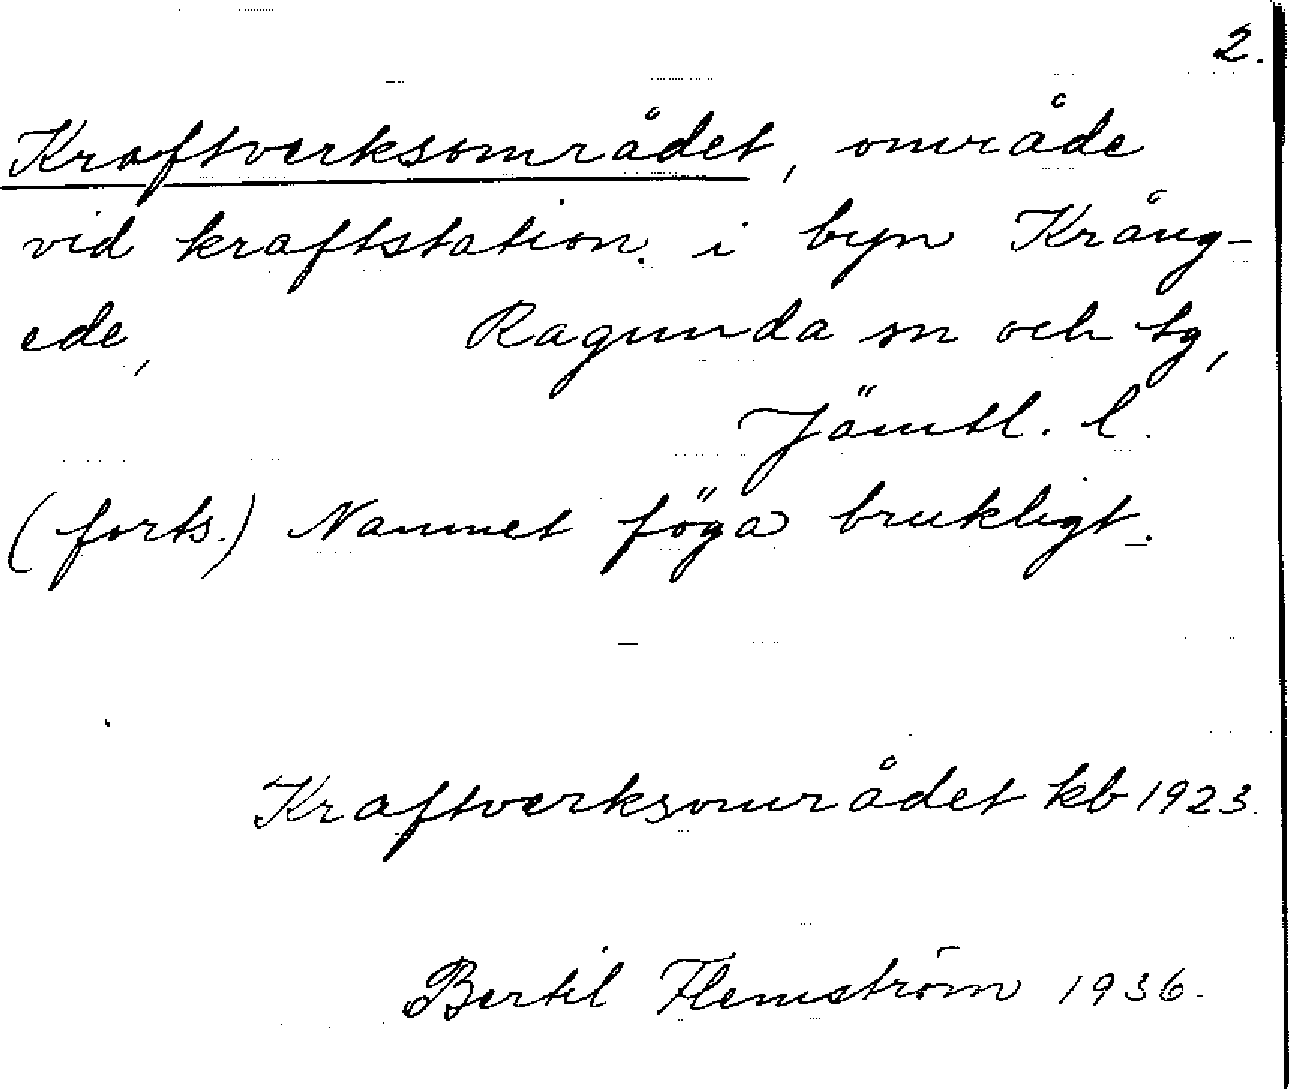 2.
Kraftverksområdet, område
vid kraftstation i byn Krång-
ede, Ragunda sn och tg,
Jämtl. l.
(forts.) Namnet föga brukligt.
Kraftverksområdet kb 1923.
Bertil Flemström 1936.